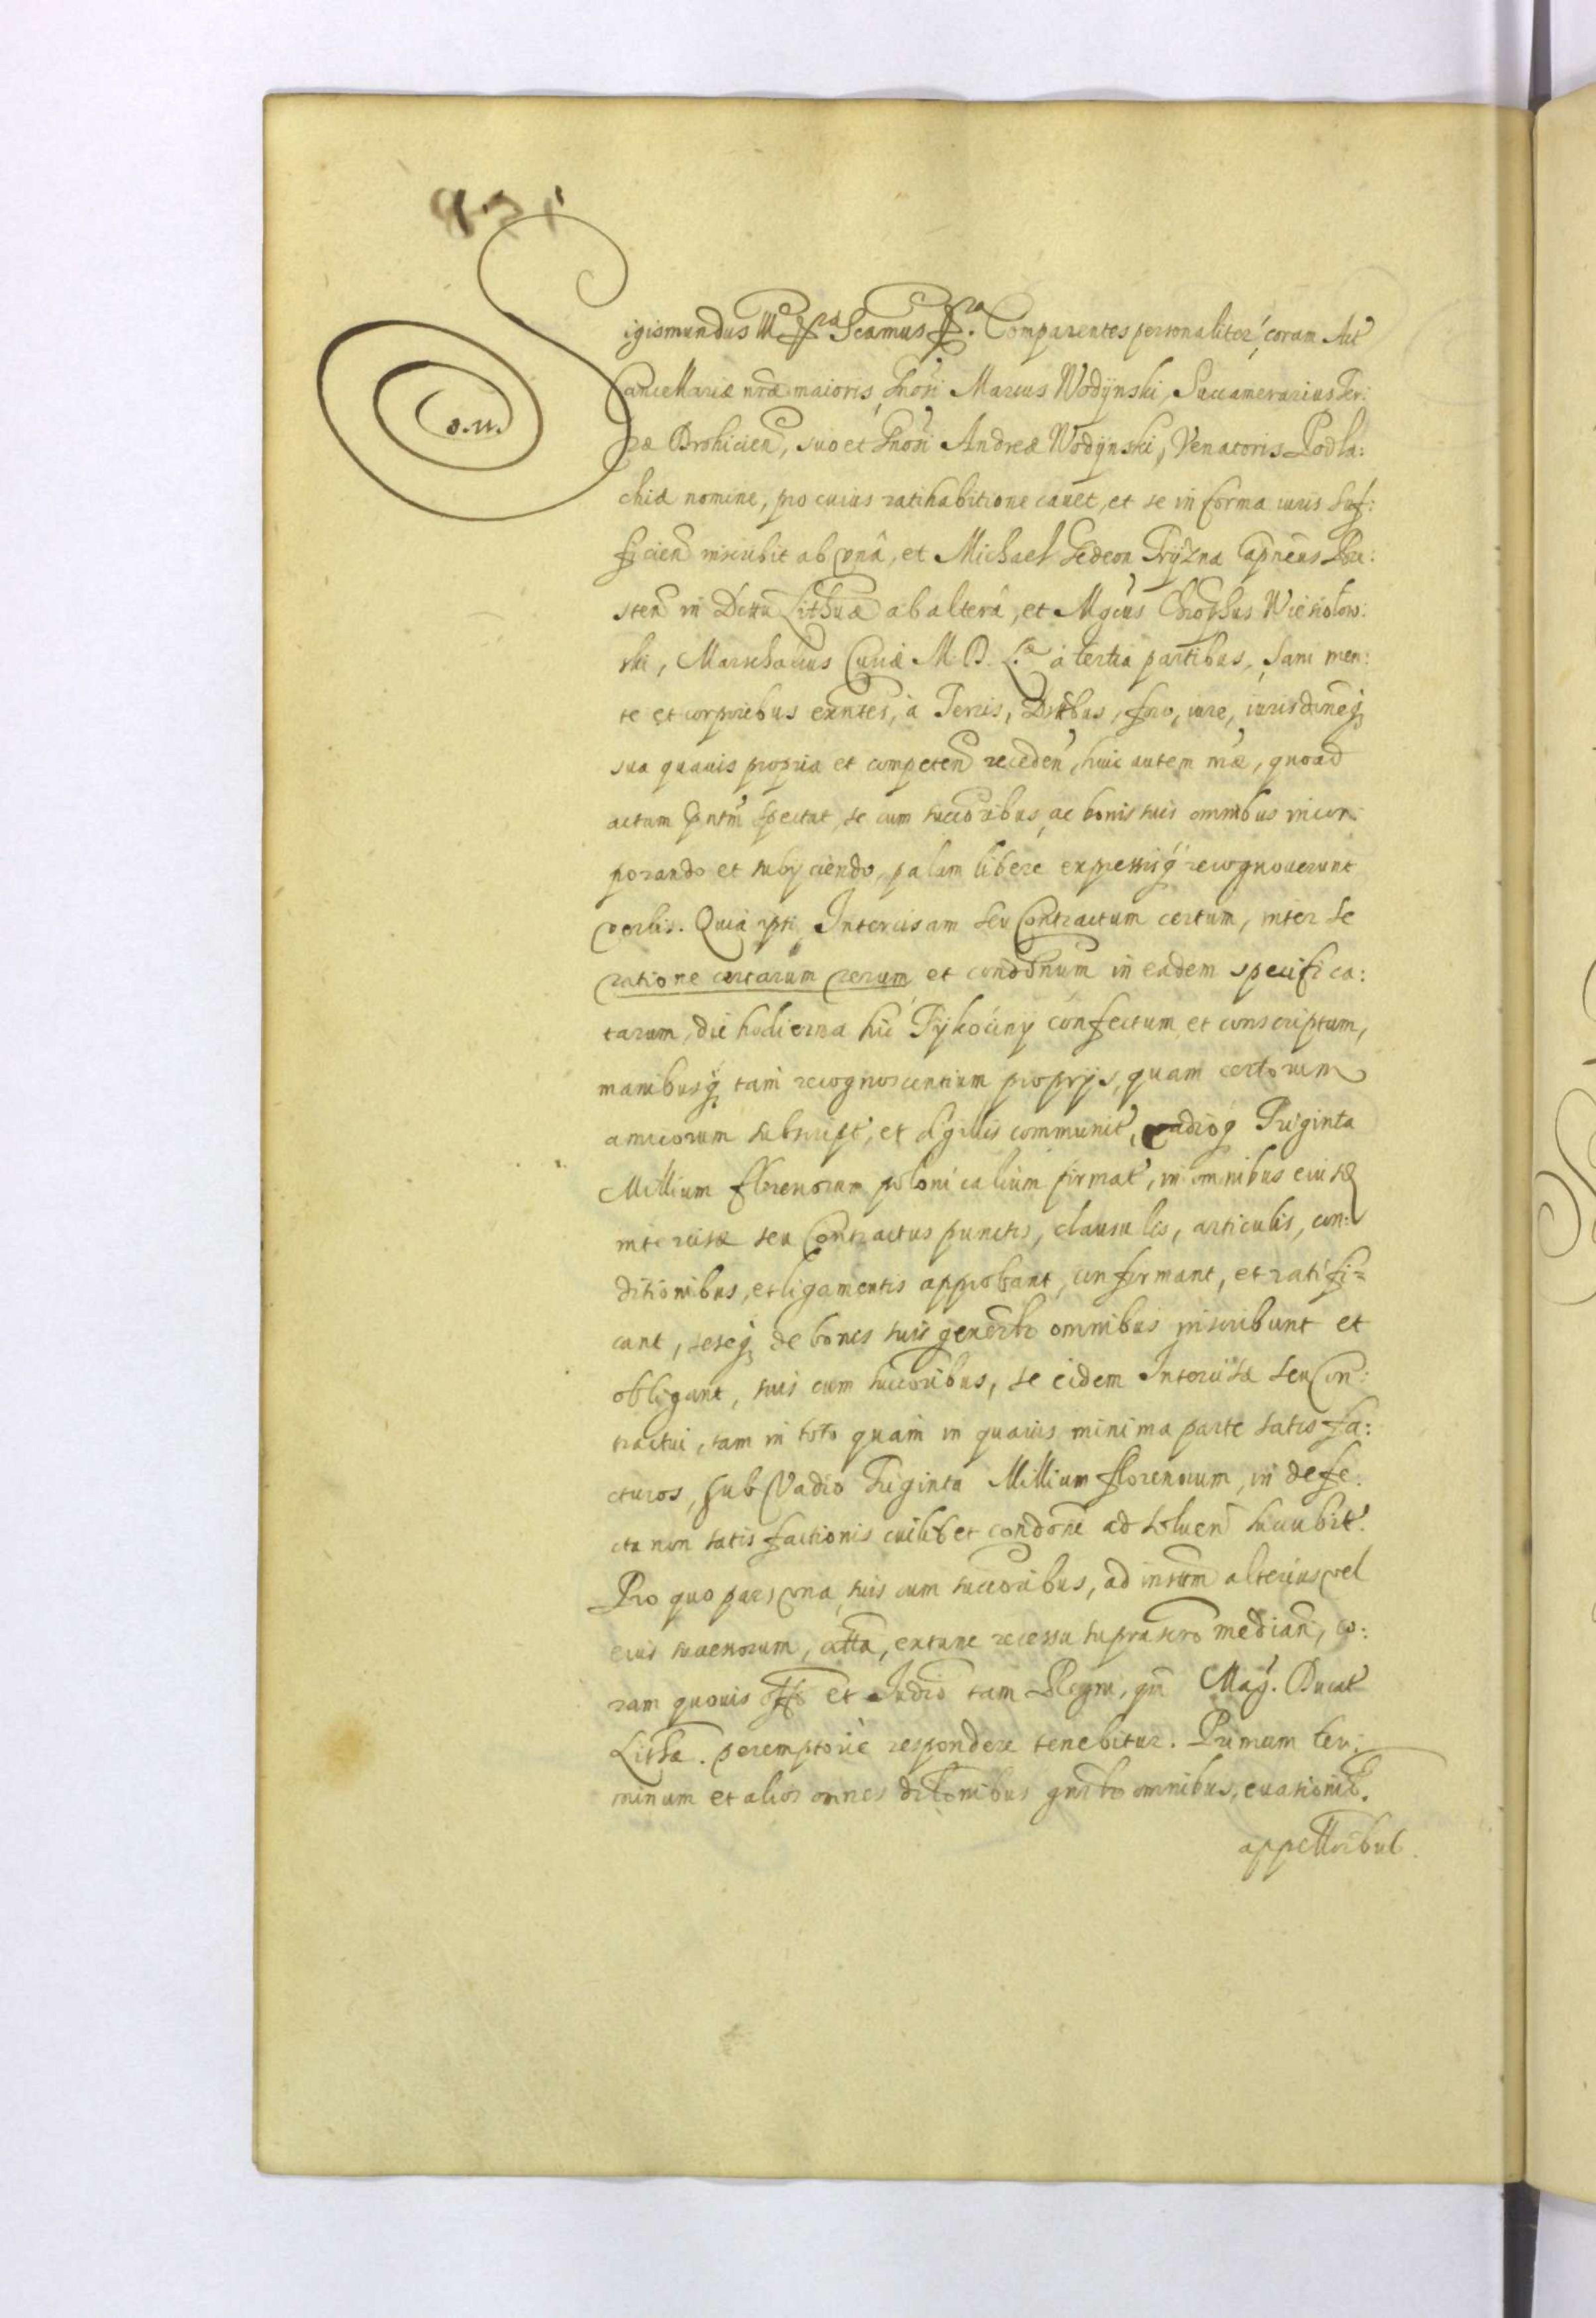 Sigismundus III. etc. Significamus etc. Comparentes personaliter, coram Act
Cancellariæ nræ maioris, Gnosi Marcus Wodÿnski, Succamerarius Ter:
ræ Drohicien, suo et Gnosi Andreæ Wodÿnski, Venatoris Podla:
chiæ nomine, pro cuius ratihabitione cavet, et se in forma iuris suf:
ficien inscribit ab una, et Michael Gedeon Trÿzna Capneus Bre:
sten in Dctu Lithuæ ab altera, et Mgcus Chrophus Wiesiolow:
ski, Marschalcus Curiæ M. D. L.æ à tertia partibus, sani men:
te et corporibus exntes, à Terris, Dctibus, foro, iure, iurisdnneq
sua quavis propria et competen receden, huic autem nræ, quoad
actum pntm spectat, se cum succoribus ac bonis suis omnibus incor:
porando et subijciendo, palam libere expressisq recognoverunt
verbis. Quia ipsi Intercisam seu Contractum certum, inter se
ratione certarum rerum et condonum in eadem specifica:
tarum, die hodierna hic Tÿkocinÿ confectum et conscriptum,
manibusq tam recognoscentium proprÿs, quam certorum
amicorum subscript, et sigillis communit, vadioq Triginta
Millium florenorum polonicalium firmat, in omnibus eiusd
intercisæ seu Contractus punctis, clausulis, articulis, con:
ditionibus, et ligamentis approbant, confirmant, et ratifi=
cant, seseq de bonis suis generlr omnibus inscribunt et
obligant, suis cum succoribus, se eidem Intercisæ seu Con:
tractui, tam in toto quam in quavis minima parte satisfa:
cturos, sub Vadio Triginta Millium florenorum, in defe:
ctu non satisfactionis cuilibet condoni ad soluen succubit.
Pro quo pars una, suis cum succoribus, ad instm alterius vel
eius succesorum, citta, extunc recessu suprascro median, co:
ram quovis offo et Judio tam Regni, qm Mag. Ducat
Litha. peremptorie respondere tenebitur. Primum ter:
minum et alios omnes diltonibus gnrlr omnibus, evationib.
appellonibus.